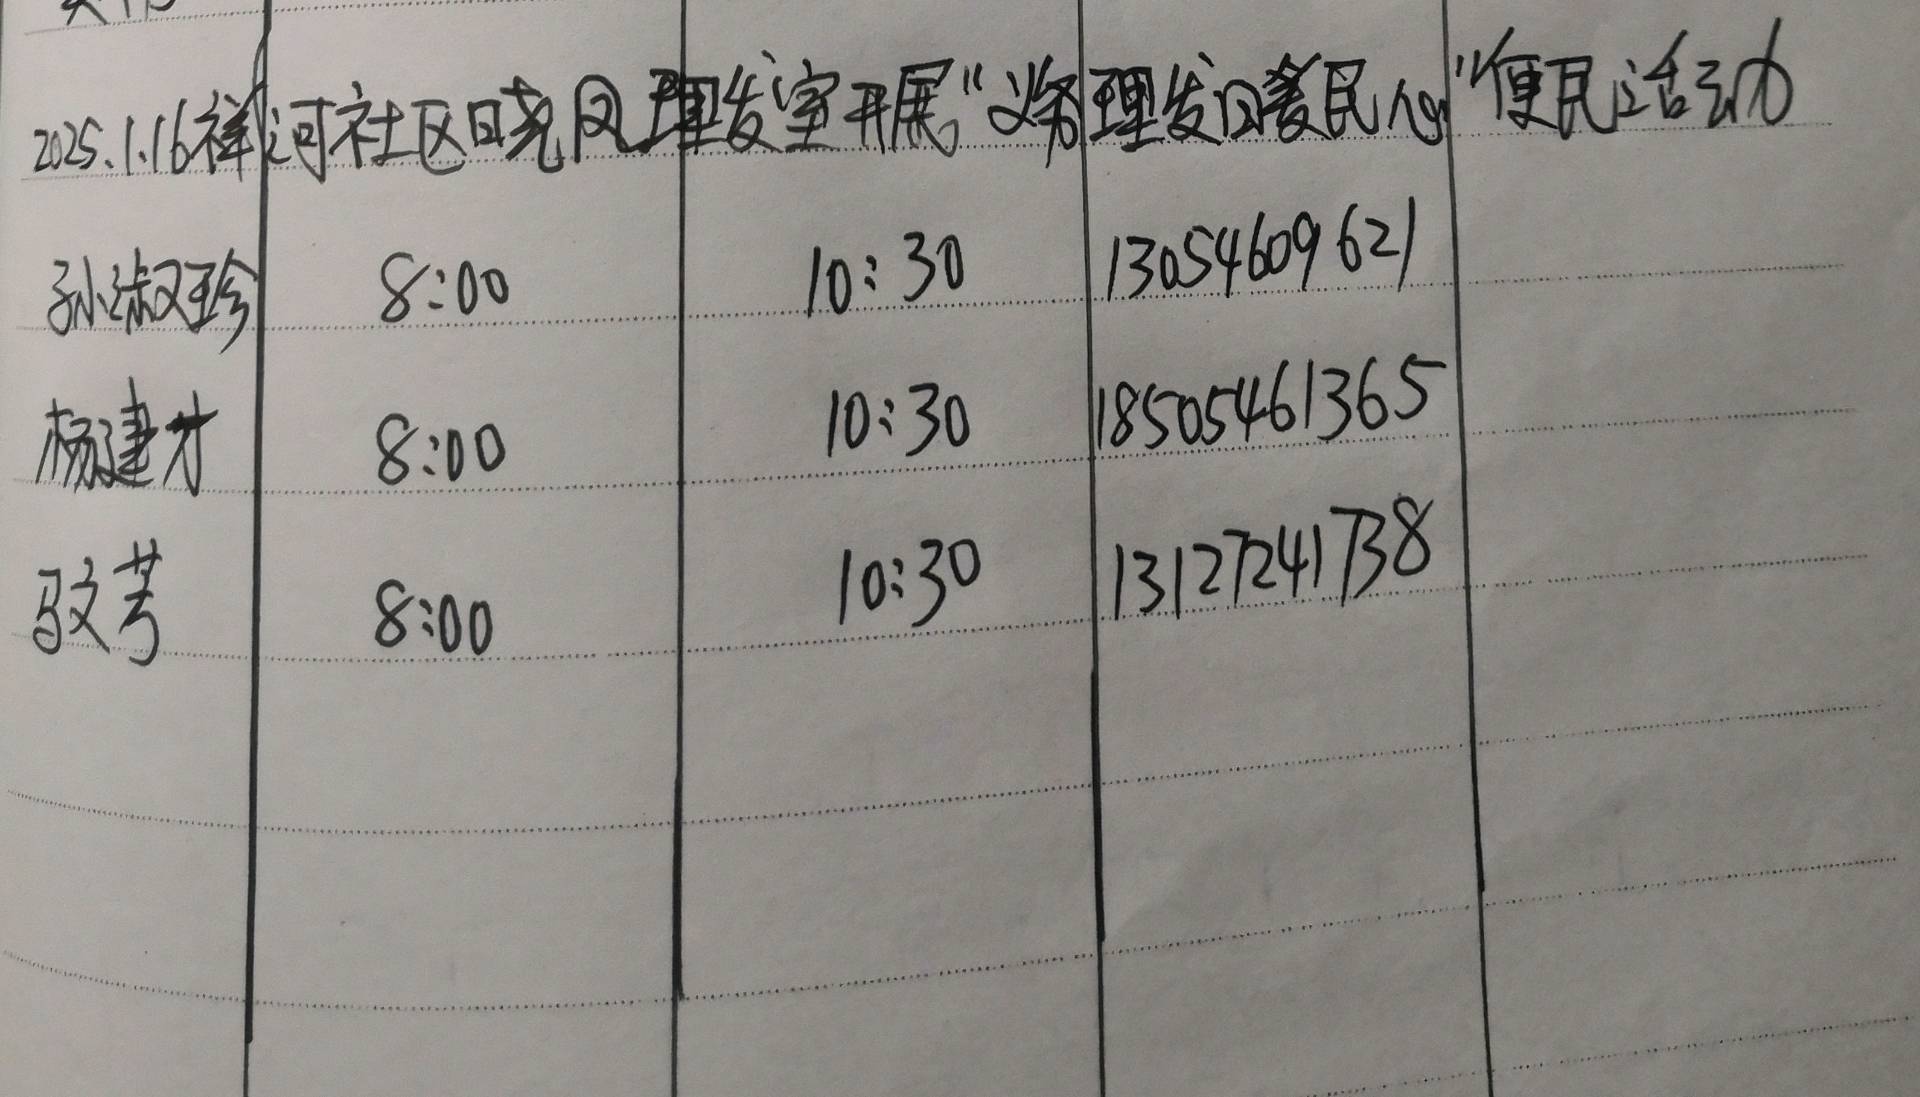 2025.1.16祥河社区晓风理发室开展“义务理发暖民心”便民活动
孙淑珍 8:00 10:30 13054609621
杨建才 8:00 10:30 18505461365
8:00 10:30 13127241738